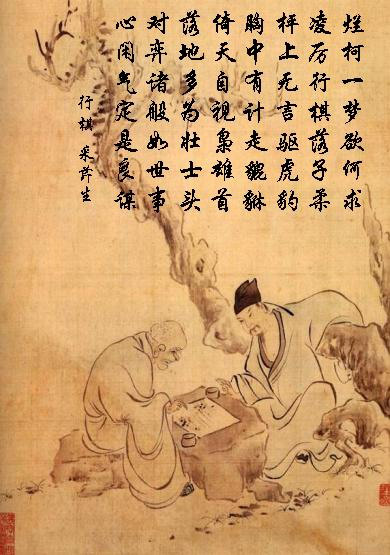 烂柯一梦欲何求
凌厉行棋落子柔
枰上无言驱虎豹
胸中有计走貔貅
倚天自视枭雄首
落地多为壮士头
对弈诸般如世事
心闲气定是良谋
行棋 采薛生